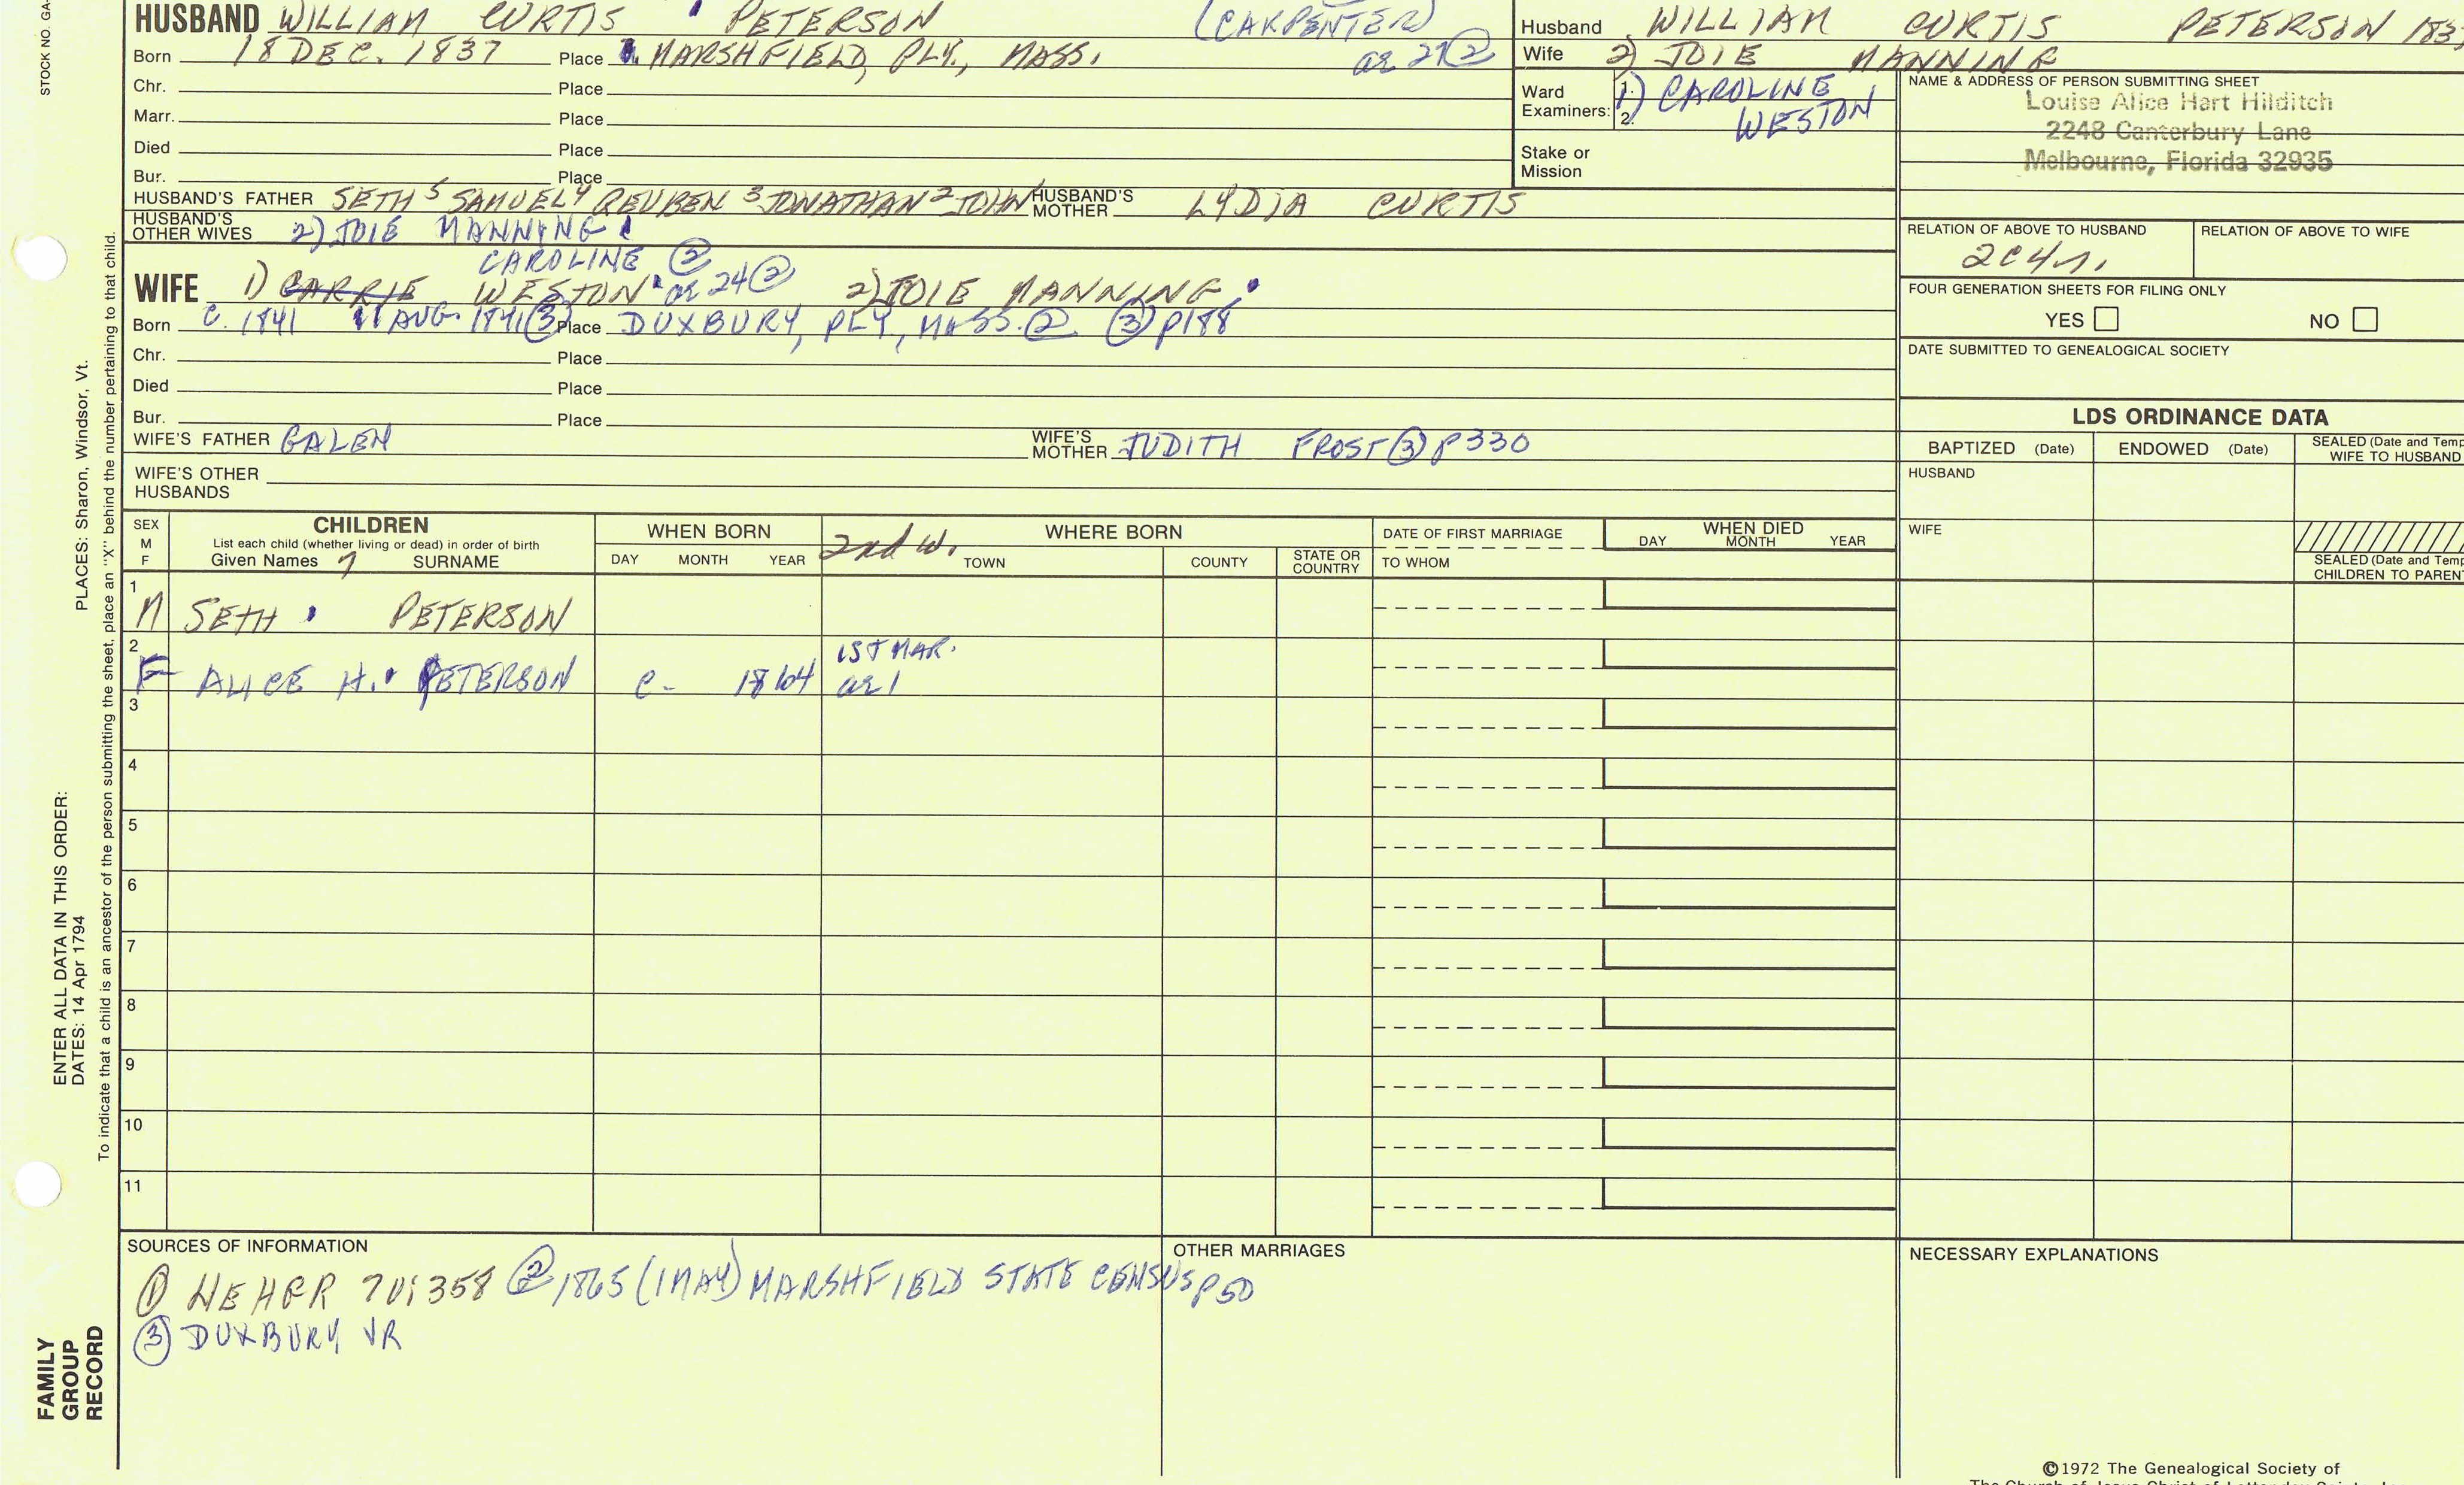 STOCK NO. GA-
HUSBAND WILLIAM CURTIS PETERSON (CARPENTER)
Born 18 DEC. 1837 Place MARSHFIELD, PLY., MASS. ae 27 ②
Chr. Place
Marr. Place
Died Place
Bur. Place
HUSBAND'S FATHER SETH 5 SAMUEL 4 REUBEN 3 JONATHAN 2 JOHN HUSBAND'S MOTHER LYDIA CURTIS
HUSBAND'S OTHER WIVES 2) JOIE MANNING
CAROLINE ②
WIFE 1) CARRIE WESTON ae 24 ② 2) JOIE MANNING
Born c. 1841 11 AUG. 1841 ③ Place DUXBURY, PLY, MASS. ② ③ P188
Chr. Place
Died Place
Bur. Place
WIFE'S FATHER GALEN WIFE'S MOTHER JUDITH FROST ③ P330
WIFE'S OTHER HUSBANDS
Husband WILLIAM CURTIS PETERSON 183
Wife 2) JOIE MANNING
Ward Examiners: 1. 2. 1) CAROLINE WESTON
Stake or Mission
NAME & ADDRESS OF PERSON SUBMITTING SHEET
Louise Alice Hart Hilditch
2248 Canterbury Lane
Melbourne, Florida 32935
RELATION OF ABOVE TO HUSBAND RELATION OF ABOVE TO WIFE
2C4r.
FOUR GENERATION SHEETS FOR FILING ONLY
YES NO
DATE SUBMITTED TO GENEALOGICAL SOCIETY
LDS ORDINANCE DATA
BAPTIZED (Date) ENDOWED (Date) SEALED (Date and Temp WIFE TO HUSBAND
HUSBAND
WIFE
SEALED (Date and Temp
CHILDREN TO PAREN
SEX M F
CHILDREN
List each child (whether living or dead) in order of birth
Given Names 7 SURNAME
WHEN BORN
DAY MONTH YEAR
2nd w. WHERE BORN
TOWN COUNTY STATE OR COUNTRY
DATE OF FIRST MARRIAGE
TO WHOM
WHEN DIED
DAY MONTH YEAR
1 M SETH PETERSON
2 F ALICE H. PETERSON c- 1864 1ST MAR. ae 1
3
4
5
6
7
8
9
10
11
SOURCES OF INFORMATION
① NEHGR 70:358 ② 1865 (1 MAY) MARSHFIELD STATE CENSUS P50
③ DUXBURY VR
OTHER MARRIAGES
NECESSARY EXPLANATIONS
©1972 The Genealogical Society of
PLACES: Sharon, Windsor, Vt.
To indicate that a child is an ancestor of the person submitting the sheet, place an "X" behind the number pertaining to that child.
ENTER ALL DATA IN THIS ORDER:
DATES: 14 Apr 1794
FAMILY
GROUP
RECORD